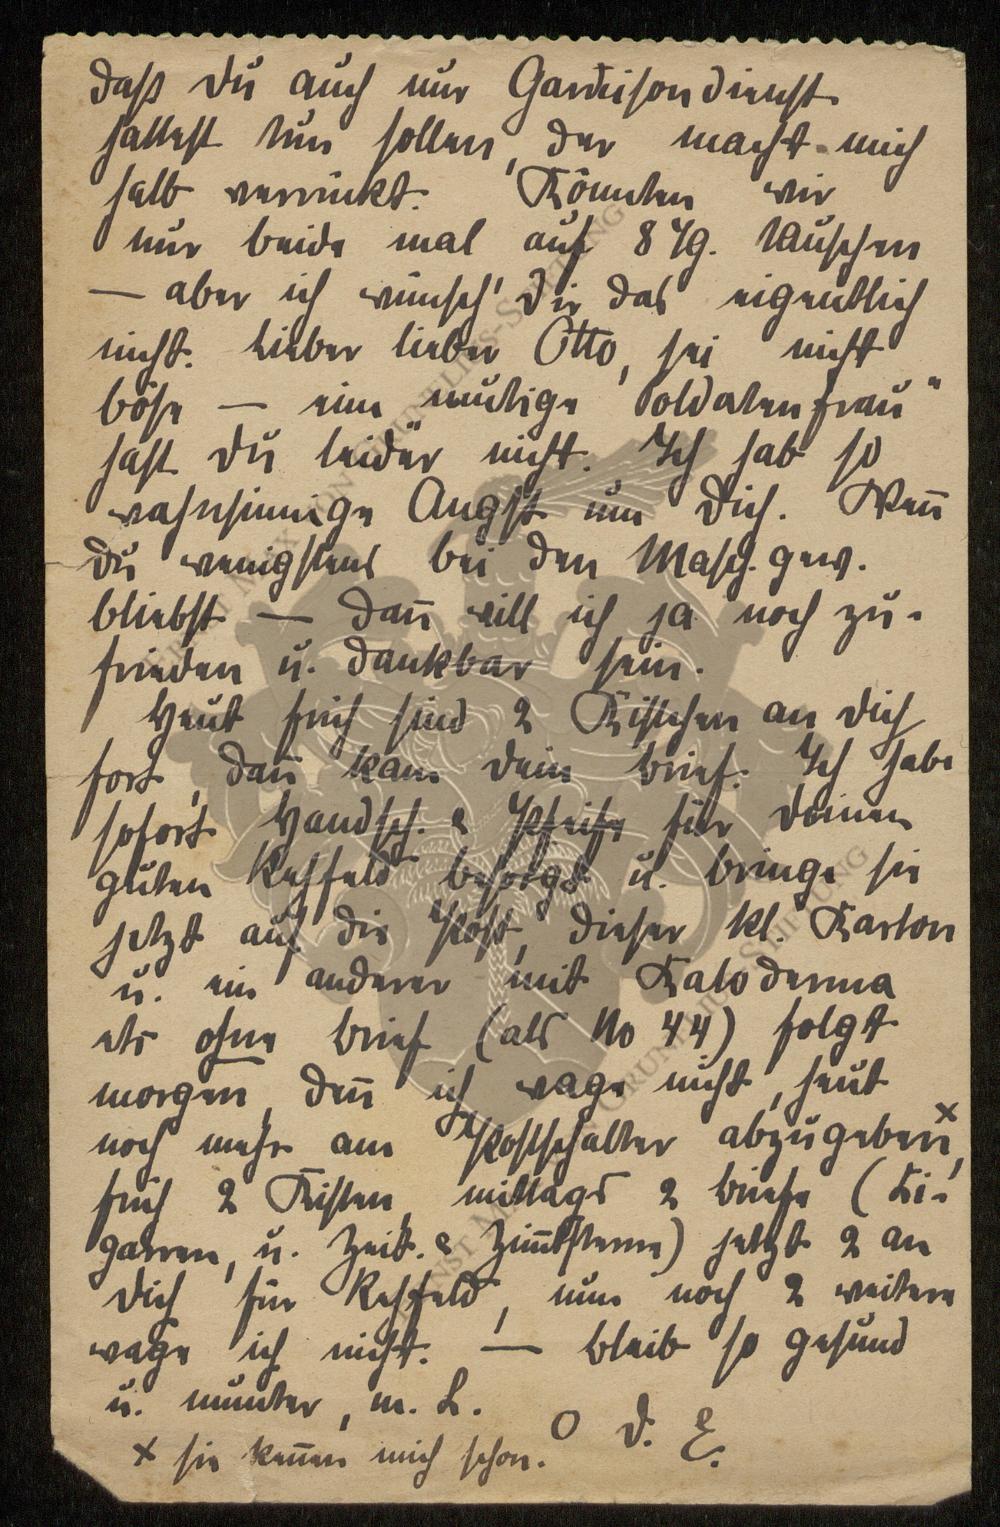 daß Du auch nur Garnisondienst
hättest tun sollen, der macht mich
halb verrückt. Könnten wir
nur beide mal auf 8 Tg. tauschen
— aber ich wünsch' Dir das eigentlich
nicht. Lieber lieber Otto, sei nicht
böse — eine mutige „Soldatenfrau"
hast Du leider nicht. Ich hab so
wahnsinnige Angst um Dich. Wen̅
Du wenigstens bei den Masch. gew.
bliebst — dan̅ will ich ja noch zu-
frieden u. dankbar sein.
Heut früh sind 2 Kistchen an Dich
fort, dan̅ kam Dein Brief. Ich habe
sofort Handsch. & Pfeife für Deinen
guten Rehfeld besorgt u. bringe sie
jetzt auf die Post, dieser kl. Karton
u. ein anderer mit Kaloderma
etc ohne Brief (als No 44) folgt
morgen, den̅ ich wage nicht, heut
noch mehr am Postschalter abzugeben x,
früh 2 Kisten, mittags 2 Briefe (Zi-
garren, u. Zeit. & Zim̅tsterne) jetzt 2 an
Dich für Rehfeld, nun noch 2 weitere
wage ich nicht. — Bleib so gesund
u. munter, m. L.
O D. E.
x sie ken̅en mich schon.
ERNST MAX VON GRUNELIUS-STIFTUNG
ERNST MAX VON GRUNELIUS-STIFTUNG